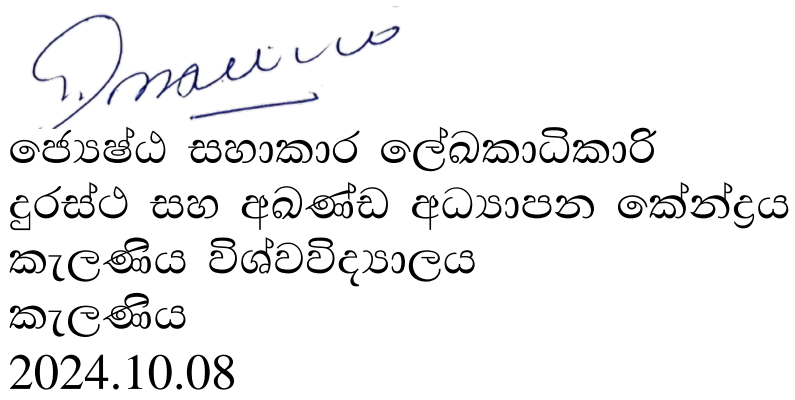 ජ්‍යෙෂ්ඨ සහකාර ලේඛකාධිකාරි
දුරස්ථ සහ අඛණ්ඩ අධ්‍යාපන කේන්ද්‍රය
කැලණිය විශ්වවිද්‍යාලය
කැලණිය
2024.10.08